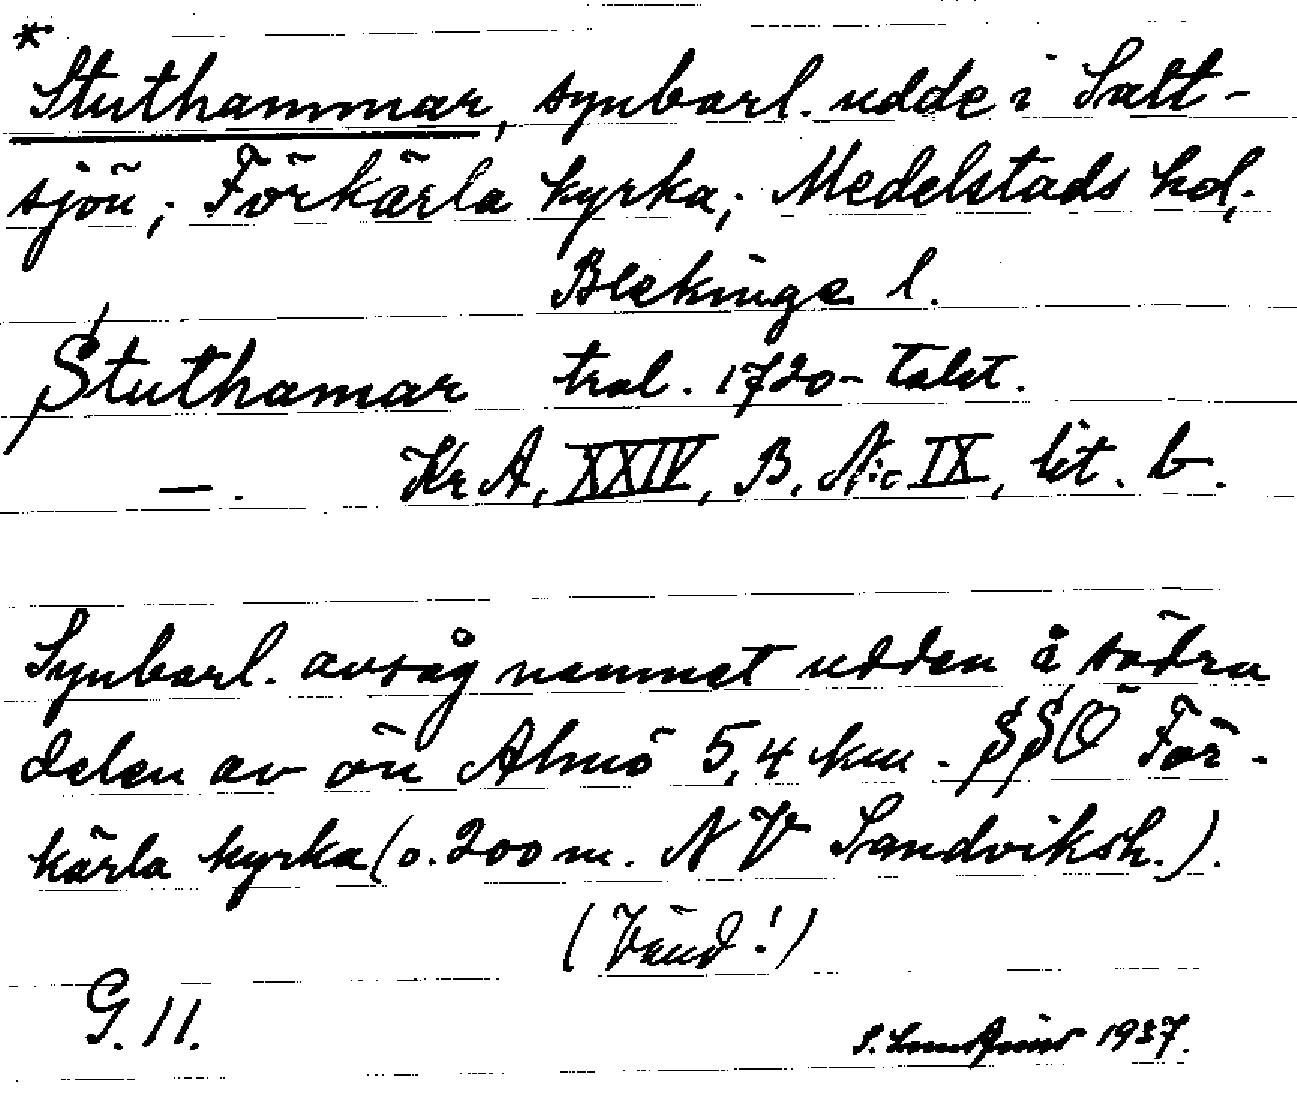 * Stuthammar, synbarl. udde i Salt-
sjön; Förkärla kyrka; Medelstads hd,
Blekinge l.
Stuthamar trol. 1720-talet.
—. KrA, XXIV, B. N:o IX, lit. b.
Synbarl. avsåg namnet udden å södra
delen av ön Almö 5,4 km. SSÖ För-
kärla kyrka (o. 200 m. NV Sandviksh.).
(Vänd!)
G. 11. 1937.